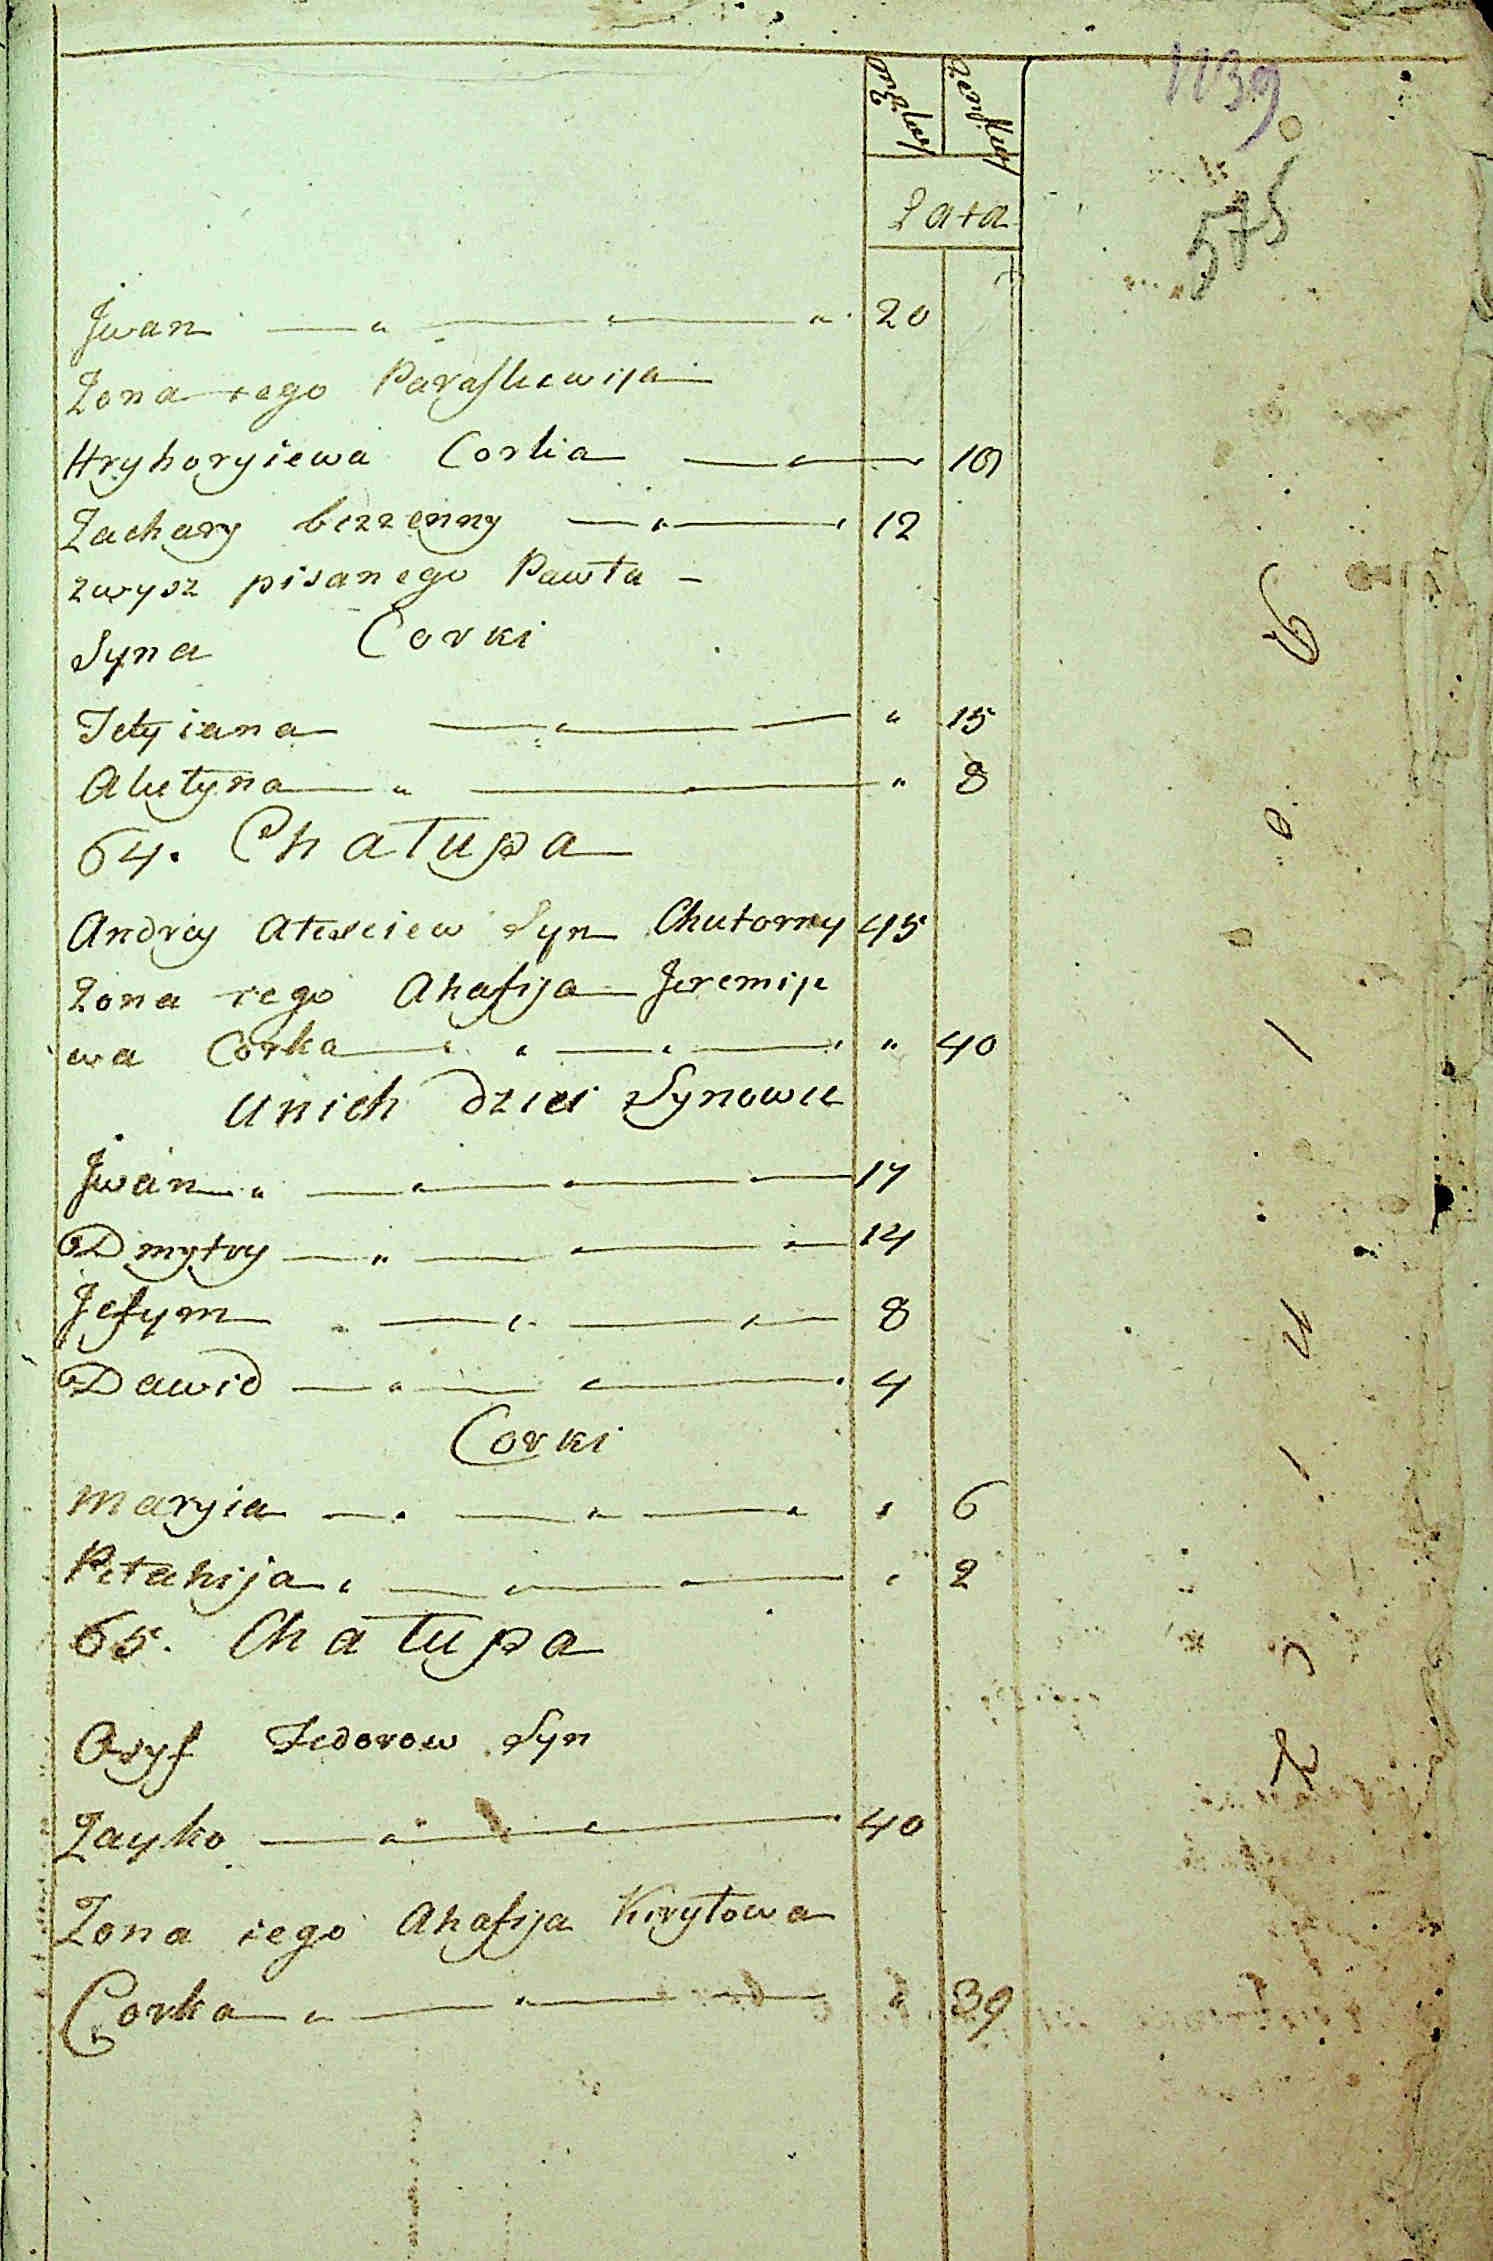 1139
575
męzkey Zenskey
Lata
Jwan 20
Zona iego Paraskewija
Hryhoryiewa Corka 19
Zachary bezzenny 12
zwysz pisanego Pawła
Syna Corki
Tetyiana " 15
Aketyna " 8
64. Chałupa
Andrey Alexiew Syn Chutorny 45
Zona iego Ahafija Jeremije
wa Corka " 40
U nich dzieci Synowie
Jwan 17
Dmytry 14
Jefym 8
Dawid 4
Corki
Maryia " 6
Pełahija " 2
65. Chałupa
Osyf Fedorow Syn
Zayko 40
Zona iego Ahafija Kiryłowa
Corka " 39